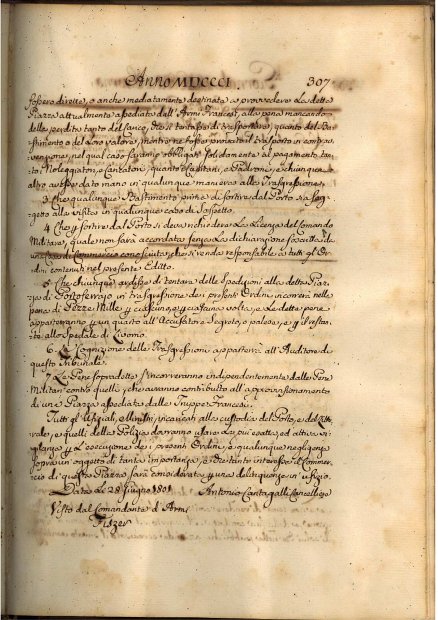 Anno MDCCCI 307
fossero dirette, o anche mediatamente destinate a provvedere la detta
Piazza attualmente assediata dall'Armi Francesi, alla pena mancando
della perdita tanto del carico, che si tentasse di trasportare, quanto del Ba-
stimento o del loro valore, mentre ne fosse provato il trasporto in contrav-
venzione, nel qual caso saranno obbligati solidamente al pagamento tan-
to i Noleggiatori, o Caricatori, quanto i Capitani, e Padroni, e chiunque
altro avesse dato mano in qualunque maniera alle Trasgressione.
3. Che qualunque Bastimento prima di sortire dal Porto sia sog-
getto alla visita in qualunque caso di sospetto.
4. Che per sortire dal Porto si deva richiedere la Licenza del Comando
Militare, quale non sarà accordata senza la dichiarazione
una Casa di Commercio conosciuta, che si renda responsabile a tutti gl'Or-
dini contenuti nel presente Editto.
5. Che chiunque ardisse di tentare delle Spedizioni alla detta Piaz-
za di Portoferrajo in trasgressione dei presenti Ordini incorrerà nella
pena di Pezze Mille per ciascuno, e per ciascuna volta, e la detta pena
apparterrà per un quarto all'Accusatore Segreto, o palese, e per il restan-
te allo Spedale di Livorno.
6. La Cognizione delle Trasgressioni apparterrà all'Auditore di
questo Tribunale.
7. Le Pene sopradette s'incorreranno indipendentemente dalle Pene
Militari contro quelli, che avranno contribuito all'approvisionamento
di una Piazza assediata dalle Truppe Francesi.
Tutti gl'Ufiziali, e Ministri incaricati alla custodia del Porto, e del Litto-
rale, e quelli della Polizia dovranno usare la più esatta, ed attiva vi-
gilanza per l'esecuzione dei presenti Ordini, e qualunque negligenza
sopra un oggetto di tanta importanza, e che tanto interessa il Commer-
cio di questa Piazza sarà considerata per una delinquenza in ufizio.
Data Le 28 Giugno 1801
Antonio Cantagalli Cancelliere
Visto dal Comandante d'Armi
Fiszer